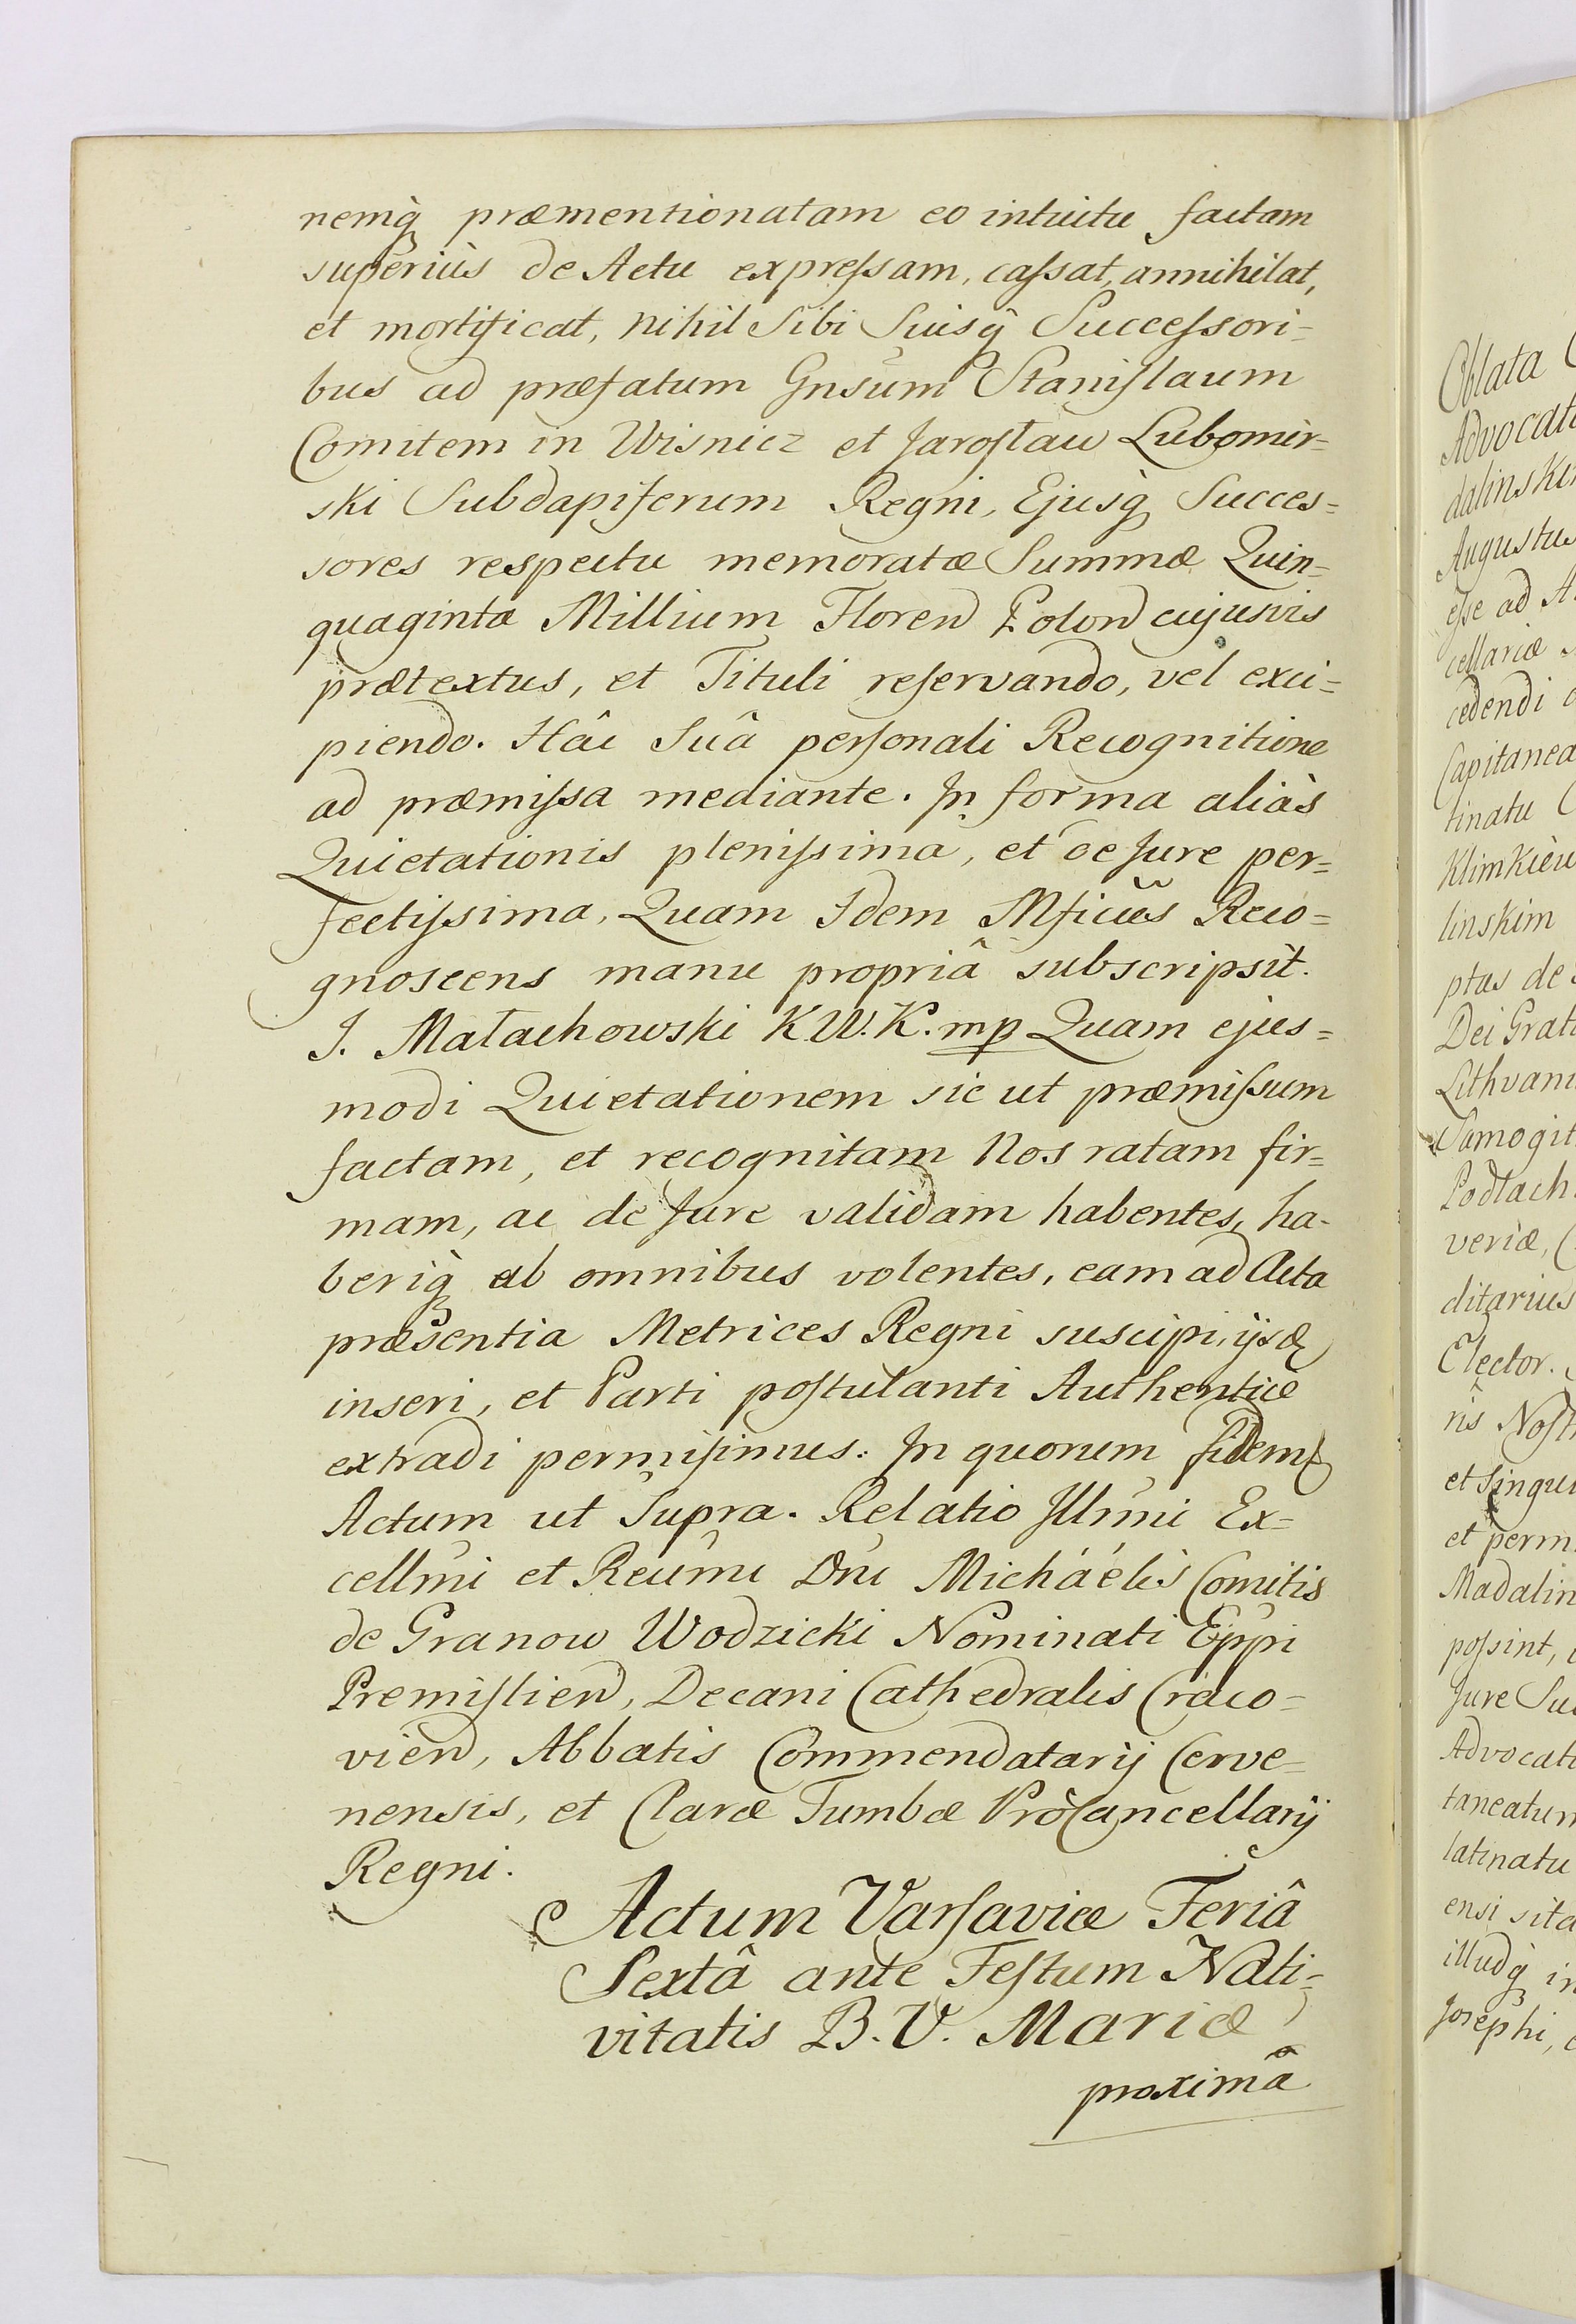 nemq́ præmentionatam eo intuitu factam
superiùs de Actu expreſsam, caſsat, annihilat,
et mortificat, nihil Sibi Suisq́ Succeſsori=
bus ad præfatum Gnsum Staniſlaum
Comitem in Wisnicz et Jaroſław Lubomir=
ski Subdapiferum Regni, Ejusq́ Succes=
sores respectu memoratæ Summæ Quin=
quaginta Millium Floren Polon cujusvis
prætextus, et Tituli reſervando, vel exci=
piendo. Hâc Suâ perſonali Recognitione
ad præmiſsa mediante. In forma aliàs
Quietationis pleniſsima, et de Jure per=
fectiſsima, Quam Idem Mficus Reco=
gnoscens manu propriâ subscripsit.
J. Małachowski K W. K. mp Quam ejus=
modi Quietationem sic ut præmiſsum
factam, et recognitam Nos ratam fir=
mam, ac de Jure validam habentes, ha-
beriq́ ab omnibus volentes, eam ad Acta
præsentia Metrices Regni suscipi, ijsq́
inseri, et Parti poſtulanti Authentice
extradi permiſimus: In quorum fidem
Actum ut Supra. Relatio Illmi Ex=
cellmi et Reumi Dni Micháélis Comitis
de Granow Wodzicki Nominati Eppi
Premiſlien, Decani Cathedralis Craco=
vien, Abbatis Commendatarij Cerve=
nensis, et Claræ Tumbæ Pròcancellarij
Regni.
Actum Varſaviæ Feriâ
Sextâ ante Feſtum Nati=
vitatis B. V. Mariæ
proximâ
Oblata
Advocati
dalinski
Augustus
eſse ad A
cellariæ
cedendi
Capitanea
tinatu
Klimkiew
linskim
ptus de
Dei Grati
Lithvani
Samogit
Podlach
veriæ,
ditarius
Elector.
ris Noſt
et Singu
et perm
Madalin
poſsint,
Jure Su
Advocati
taneatum
latinatu
ensi sita
illudq́ in
Josephi,